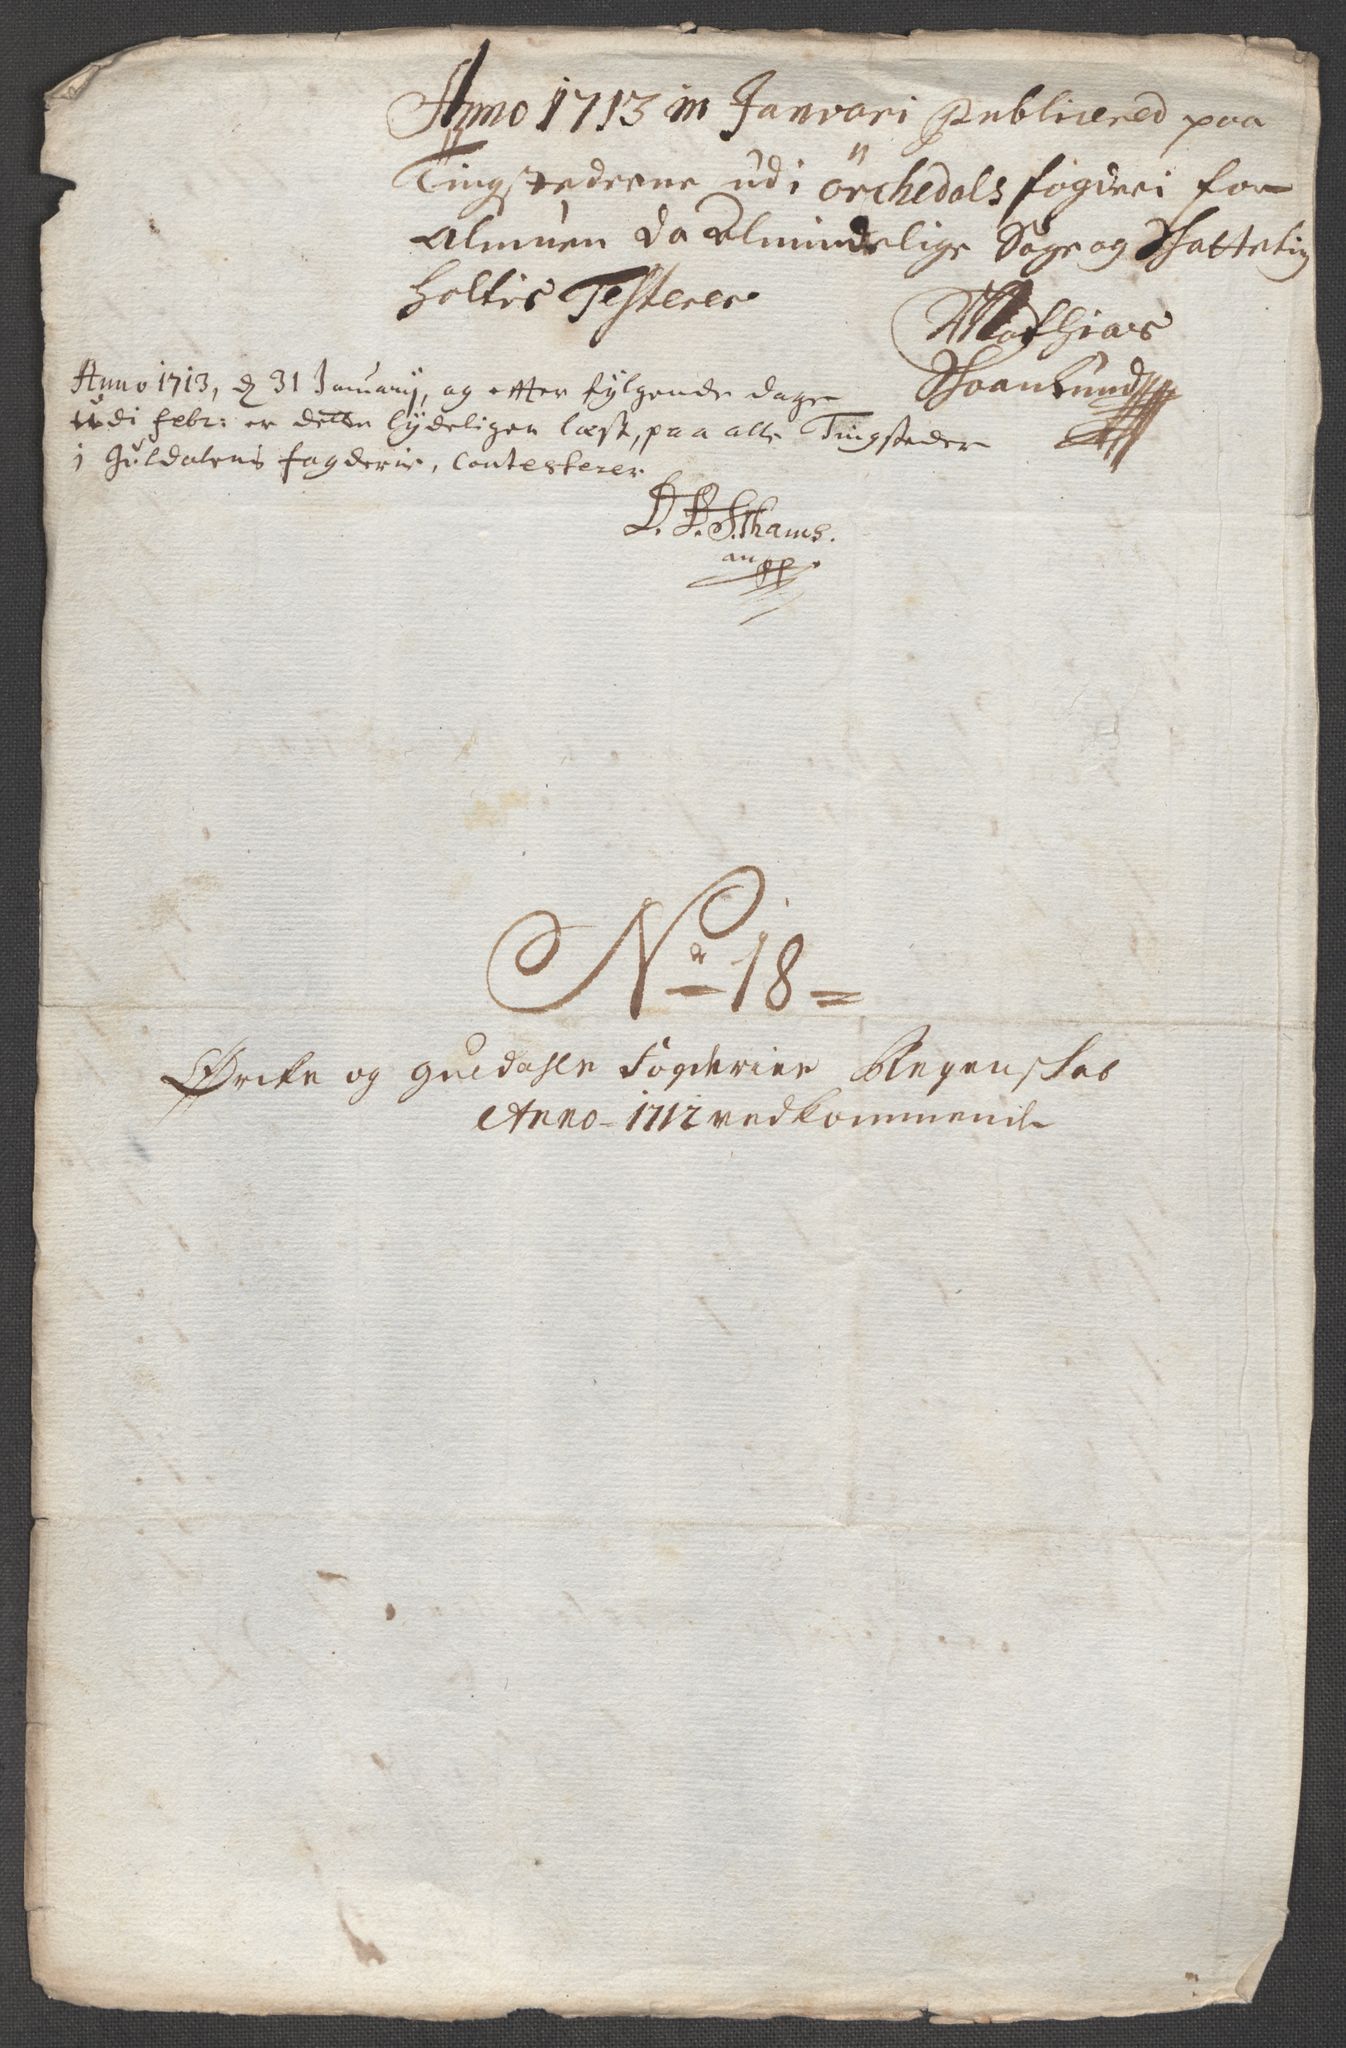 Anno 1713 in Janvari Publicered paa
Tingstederne udi örchedals fogderi for
Almuen da Almindelige Sage og Schatteting
holtis Testerer
Mathias
Schaanlund
Anno 1713, d 31 January, og efter fylgende dage
udi febr: er dette lydeligen læst, paa alle Tingsteder
i Guldalens fogderie, Contesterer
L. P. S. Thams.
No 18
Ørcke og Guldahls Fogderiers Regenskab
Anno 1712 vedkommende